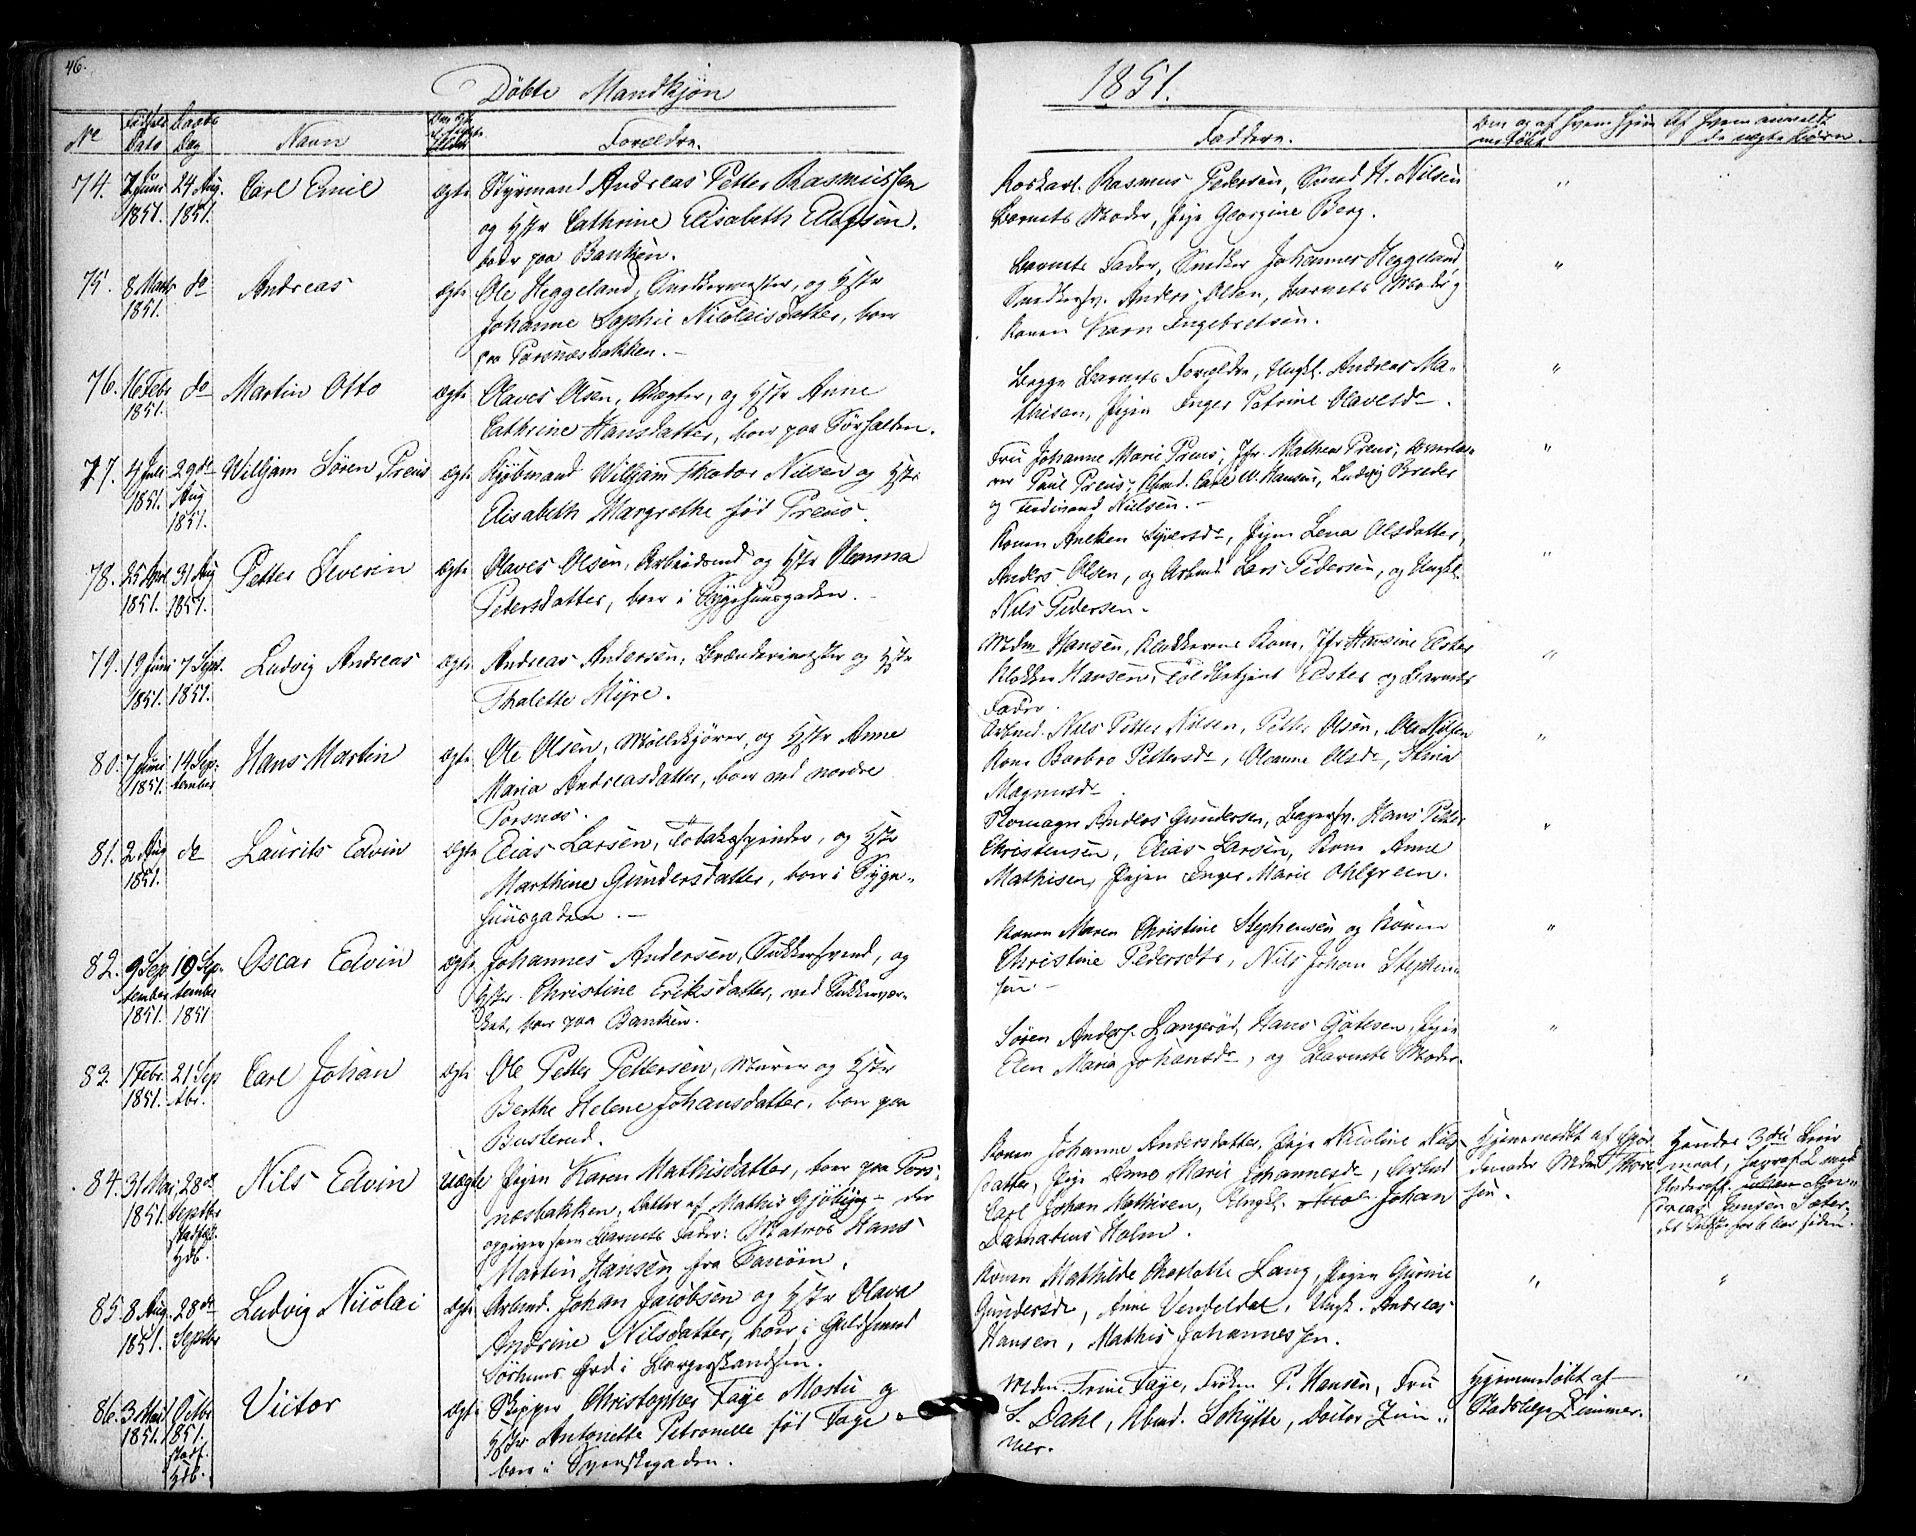 46.
Døbte Mandkjøn
1851.
No
Fødsels Dato
Daabs Dag
Navn
Forældre.
Faddere.
74. 7 Juni 1851. 24 Aug. 1851. Carl Emil ægte Styrmand Andreas Petter Rasmussen
og Hstr Cathrine Elisabeth
boer paa Banken.
Rasmus Pedersen, Smed H. Nilsen
Barnets Moder, Pige Georgine Berg.
75. 8 Marts 1851. do Andreas ægte Ole Heggeland, Snedkermester, og Hstr
Johanne Sophie Nicolaisdatter, boer
paa Torsnæsbakken.
Barnets Fader, Snedker Johannes Heggeland
Snedkersv. Anders Olsen, Barnets Moder og
Konen Karn Ingebretsen.
76. 16 Febr 1851. do Martin Otto ægte Olaves Olsen, Vægter, og Hstr Anne
Cathrine Hansdatter, boer paa Sørhalden.
Begge Barnets Forældre, Ungk. Andreas Ma-
thisen, Pigen Inger Petrine Olavesdr.
77. 4 Juli 1851. 29de Aug 1851. Willjam Søren Preus ægte Kjøbmand Willjam Thodor Nilsen og Hstr
Elisabeth Margrethe fød Preus.
Fru Johanne Marie Preus, Jfr. Mathea Preus,
Paul Preus, Carl W. Hansen, Ludvig Breder
og Ferdinand Nielsen.
78. 25 Apr. 1851. 31 Aug 1851. Petter Severin ægte Olaves Olsen, Arbeidsmd og Hstr Oleanna
Petersdatter, boer i Sygehuusgaden.
Konen Anlken Syversdr, Pigen Lena Olsdatter,
Anders Olsen, og Arbmd Lars Pedersen, og Ungk.
Nils Pedersen.
79. 19 Juni 1851. 7 Sept. 1851. Ludvig Andreas ægte Andreas Andersen, Brænderimester og Hstr
Thalette Myre.
Mdm Hansen, Klokkerens Kone, Jfr Hansine Elster
Klokker Hansen, Toldbetjent Elster og Barnets
Fader.
80. 7 Juni 1851. 14 September Hans Martin ægte Ole Olsen, Møllekjører, og Hstr Anne
Maria Andreasdatter, boer ved nordre
Torsnæs.
Arbmd. Nils Petter Nilsen, Petter Olsen, Ole Nilsen
Kone Barbro Pettersdr, Oleanne Olsdr, Stina
Magnusdr.
81. 2 Aug 1851. do Laurits Edvin ægte Elias Larsen, Tobakspinder, og Hstr
Marthine Gundersdatter, boer i Syge-
huusgaden.
Skomagr Andreas Gundersen, Bagersv. Hans Petter
Christensen, Elias Larsen, Kone Anne
Mathisen, Pigen Inger Marie Ohlgreen.
82. 9 September 1851. 19 September 1851 Oscar Edvin ægte Johannes Andersen, Sukkersvend, og
Hstr. Christine Eriksdatter, ved Sukkerver-
ket, boer paa Banken.
Konen Maren Christine Stephensen og Konen
Christine Pedersdtr, Nils Johan Stephen-
sen.
83. 1 Febr. 1851. 21 Septbr. Carl Johan ægte Ole Petter Pettersen, Murer og Hstr
Berthe Helene Johansdatter, boer paa
Busterud.
Søren Anders. Langerød, Hans Gotesen, Pige
Elen Maria Johansdr, og Barnets Moder.
84. 31 Mai 1851. 28de Septbr Nils Edvin uægte Pigen Karen Mathisdatter, boer paa Tors-
næsbakken, Datter af Mathis Gjøby - der
opgiver som Barnets Fader: Matros Hans
Martin Hansen fra
Konen Johanne Andersdatter, Pige Nicoline Nils-
datter, Pige Anne Marie Johannesdr, Arbmd
Carl Johan Mathisen, Ungk. Johan
Damatius Holm.
Hjemmedøbt af Gjor-
demoder Mdm Thore-
sen.
Hendes 3die Leier-
maal, heraf 2 med
Underoff. Johan An-
dreas Jensen Sæter-
det sidste for 6 Aar siden.
85. 8 Aug. 1851. 28de Septbr Ludvig Nicolai ægte Arbmd. Johan Jacobsen og Hstr Olava
Andrine Nilsdatter, boer i Guldsmed
Sørhuns Grd i Borgerskandsen.
Konen Mathilde Charlotte Lang, Pigen Gurine
Gundersdr, Anne Vendeldal, Ungk. Andreas
Hansen, Mathis Johannessen.
86. 3 Mai 1851. Octbr 1851. Victor ægte Skipper Christopher Faye Mostu og
Hstr Antonette Petronelle fød Faye -
boer i Svenskegaden.
Mdm. Trine Faye, Frøken P. Hansen, Fru
S. Dahl, Schytte, Doctor Zim-
mer.
Hjemmedøbt af
Stadslæge Zimmer.